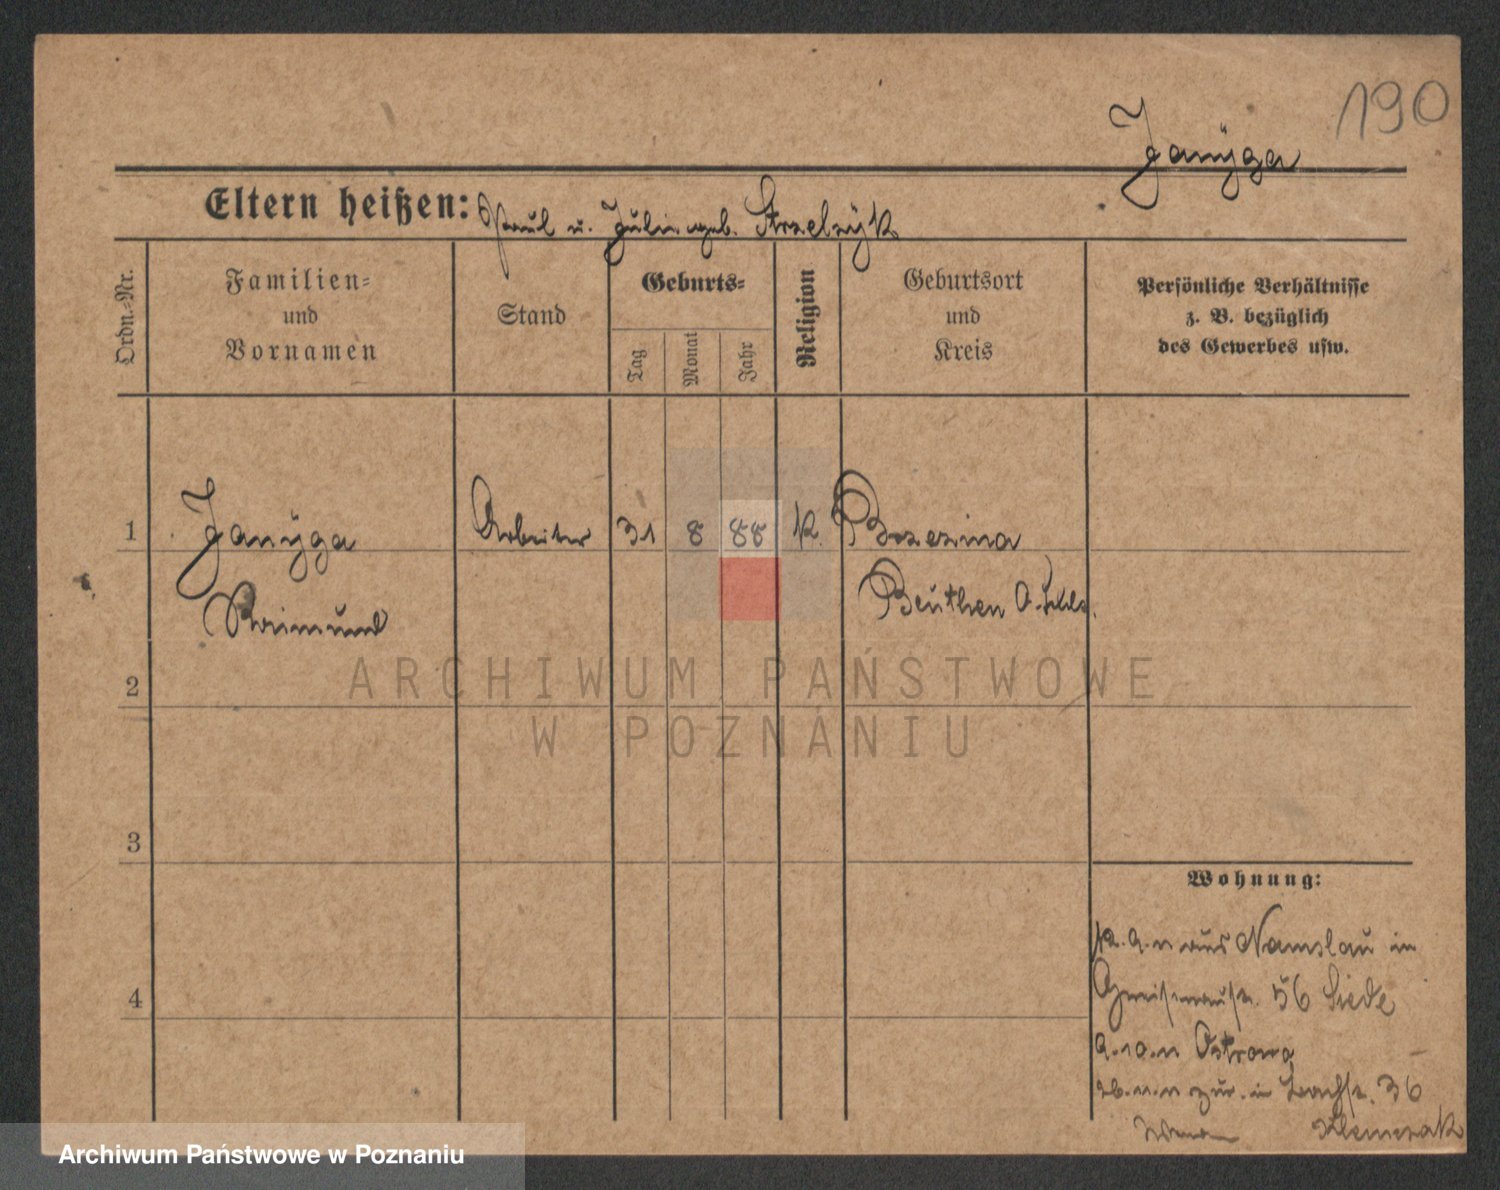 190
Janÿga
Eltern heißen: Paul u. Julie geb. Strzelzÿk
Ordn.-Nr.
Familien-
und
Vornamen
Stand
Geburts-
Tag
Monat
Jahr
Religion
Geburtsort
und
Kreis
Persönliche Verhältnisse
z. B. bezüglich
des Gewerbes usw.
1
Janÿga Arbeiter 31 8 88 k. Brzezina
Raimund Beuthen O.Schls.
2
ARCHIWUM PAŃSTWOWE
W POZNANIU
3
4
Wohnung:
aus Namslau in
56 Siede
Ostrowo
zur. in 36
Klemczak
Archiwum Państwowe w Poznaniu